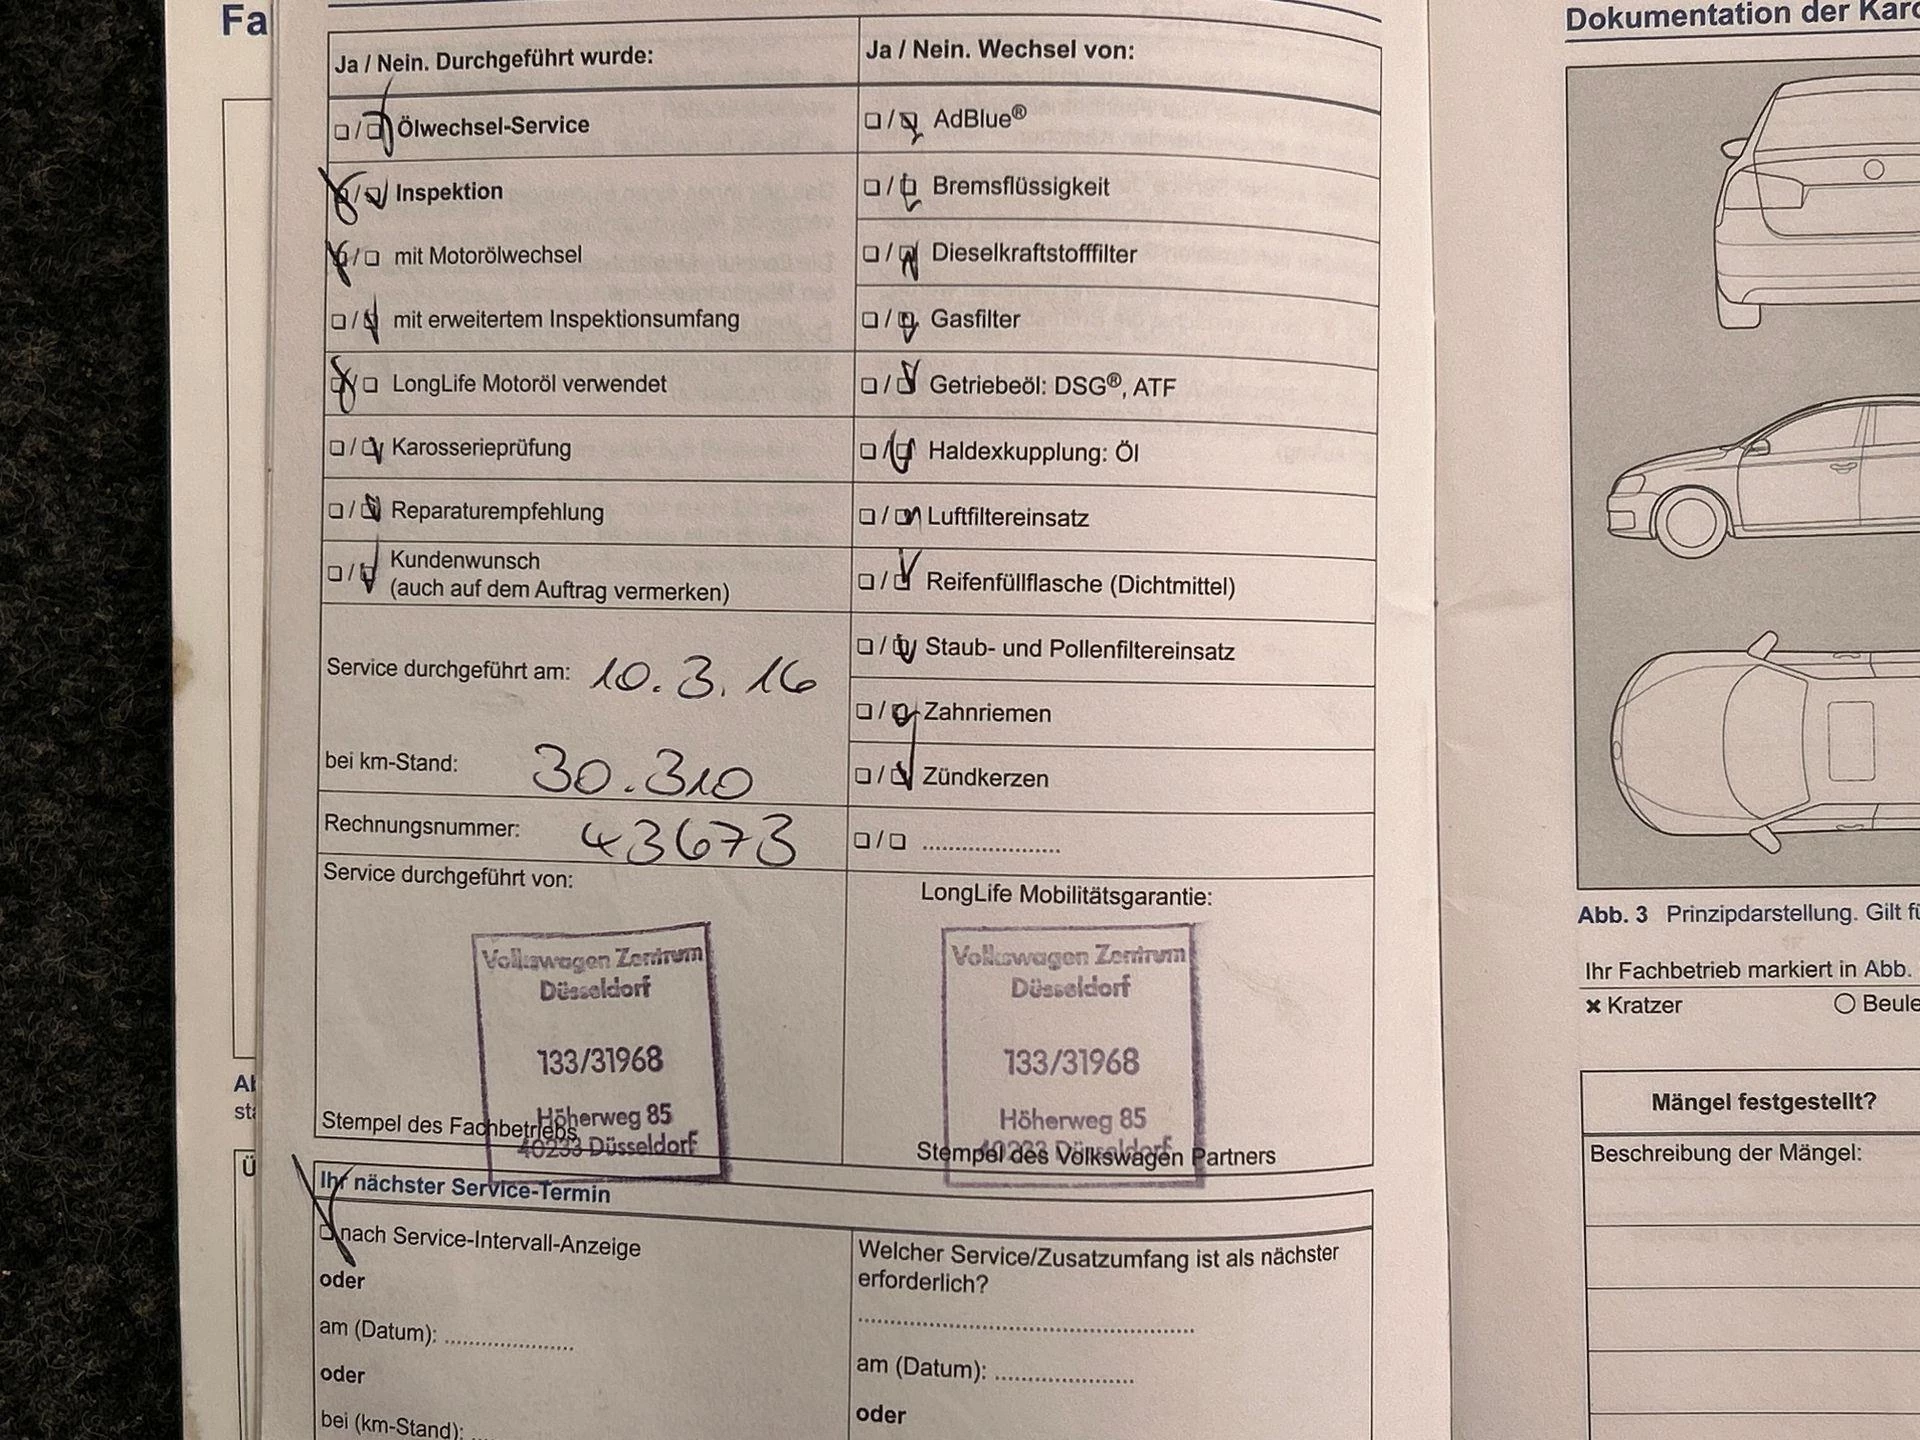 Fa
Ja / Nein. Durchgeführt wurde:
❏ / ❏ Ölwechsel-Service
❏ / ❏ Inspektion
❏ / ❏ mit Motorölwechsel
❏ / ❏ mit erweitertem Inspektionsumfang
❏ / ❏ LongLife Motoröl verwendet
❏ / ❏ Karosserieprüfung
❏ / ❏ Reparaturempfehlung
❏ / ❏ Kundenwunsch
(auch auf dem Auftrag vermerken)
Service durchgeführt am: 10.3.16
bei km-Stand: 30.310
Rechnungsnummer: 43673
Service durchgeführt von:
Volkswagen Zentrum
Düsseldorf
133/31968
Höherweg 85
40233 Düsseldorf
Stempel des Fachbetriebs
Ja / Nein. Wechsel von:
❏ / ❏ AdBlue®
❏ / ❏ Bremsflüssigkeit
❏ / ❏ Dieselkraftstofffilter
❏ / ❏ Gasfilter
❏ / ❏ Getriebeöl: DSG®, ATF
❏ / ❏ Haldexkupplung: Öl
❏ / ❏ Luftfiltereinsatz
❏ / ❏ Reifenfüllflasche (Dichtmittel)
❏ / ❏ Staub- und Pollenfiltereinsatz
❏ / ❏ Zahnriemen
❏ / ❏ Zündkerzen
❏ / ❏ .....................
LongLife Mobilitätsgarantie:
Volkswagen Zentrum
Düsseldorf
133/31968
Höherweg 85
40233 Düsseldorf
Stempel des Volkswagen Partners
Ihr nächster Service-Termin
❏ nach Service-Intervall-Anzeige
oder
am (Datum): ....................
oder
bei (km-Stand): ..
Welcher Service/Zusatzumfang ist als nächster
erforderlich?
....................................................
am (Datum): .....................
oder
Dokumentation der Karo
Abb. 3 Prinzipdarstellung. Gilt fü
Ihr Fachbetrieb markiert in Abb.
✖ Kratzer ○ Beule
Mängel festgestellt?
Beschreibung der Mängel: